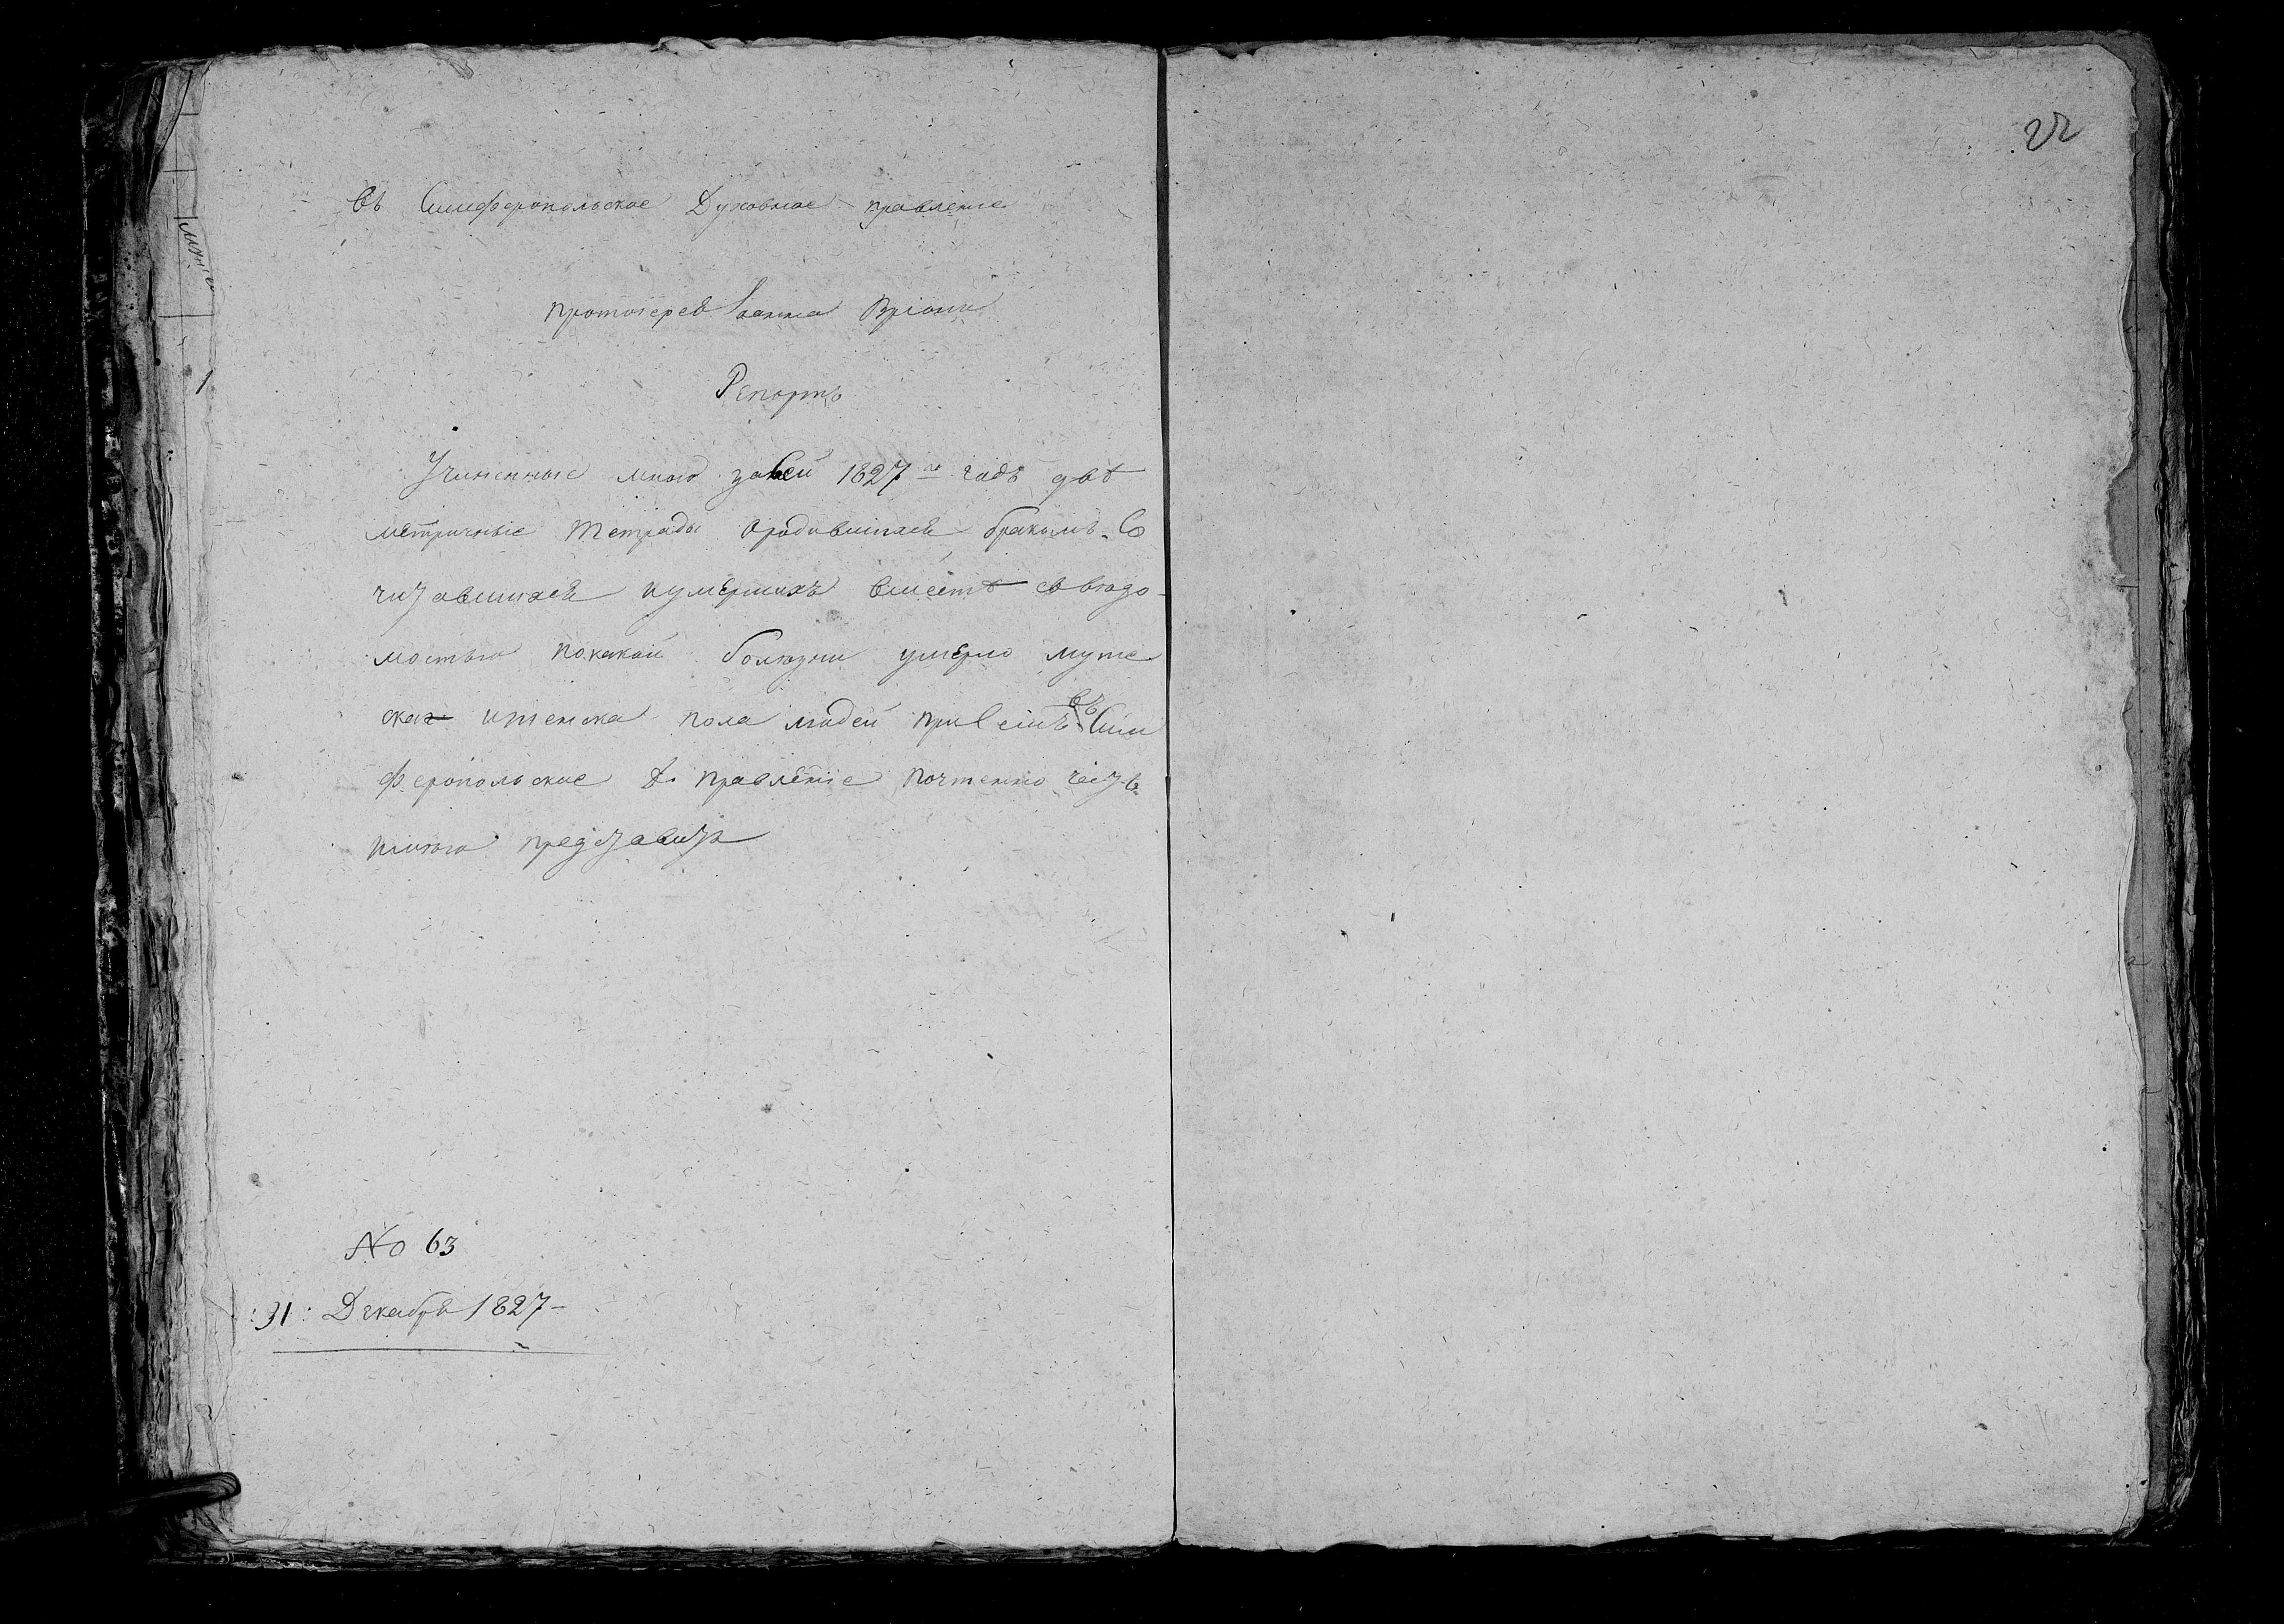 Въ Симферопольское Духовное правленіе
протоіерея Іоанна Вріони
Репортъ
Учиненные мною засей 1827го годъ двѣ
метричныіе тетрады ородившихся бракомъ Со
читавшихся иумершихъ вместѣ свѣдо-
мостью покакой болѣзни умерло муже
ска иженска пола людей присемъ въ Сим
феропольское Д. правленіе почтенно честь
имѣю представить
№ 63
:31: Декабря 1827-
22